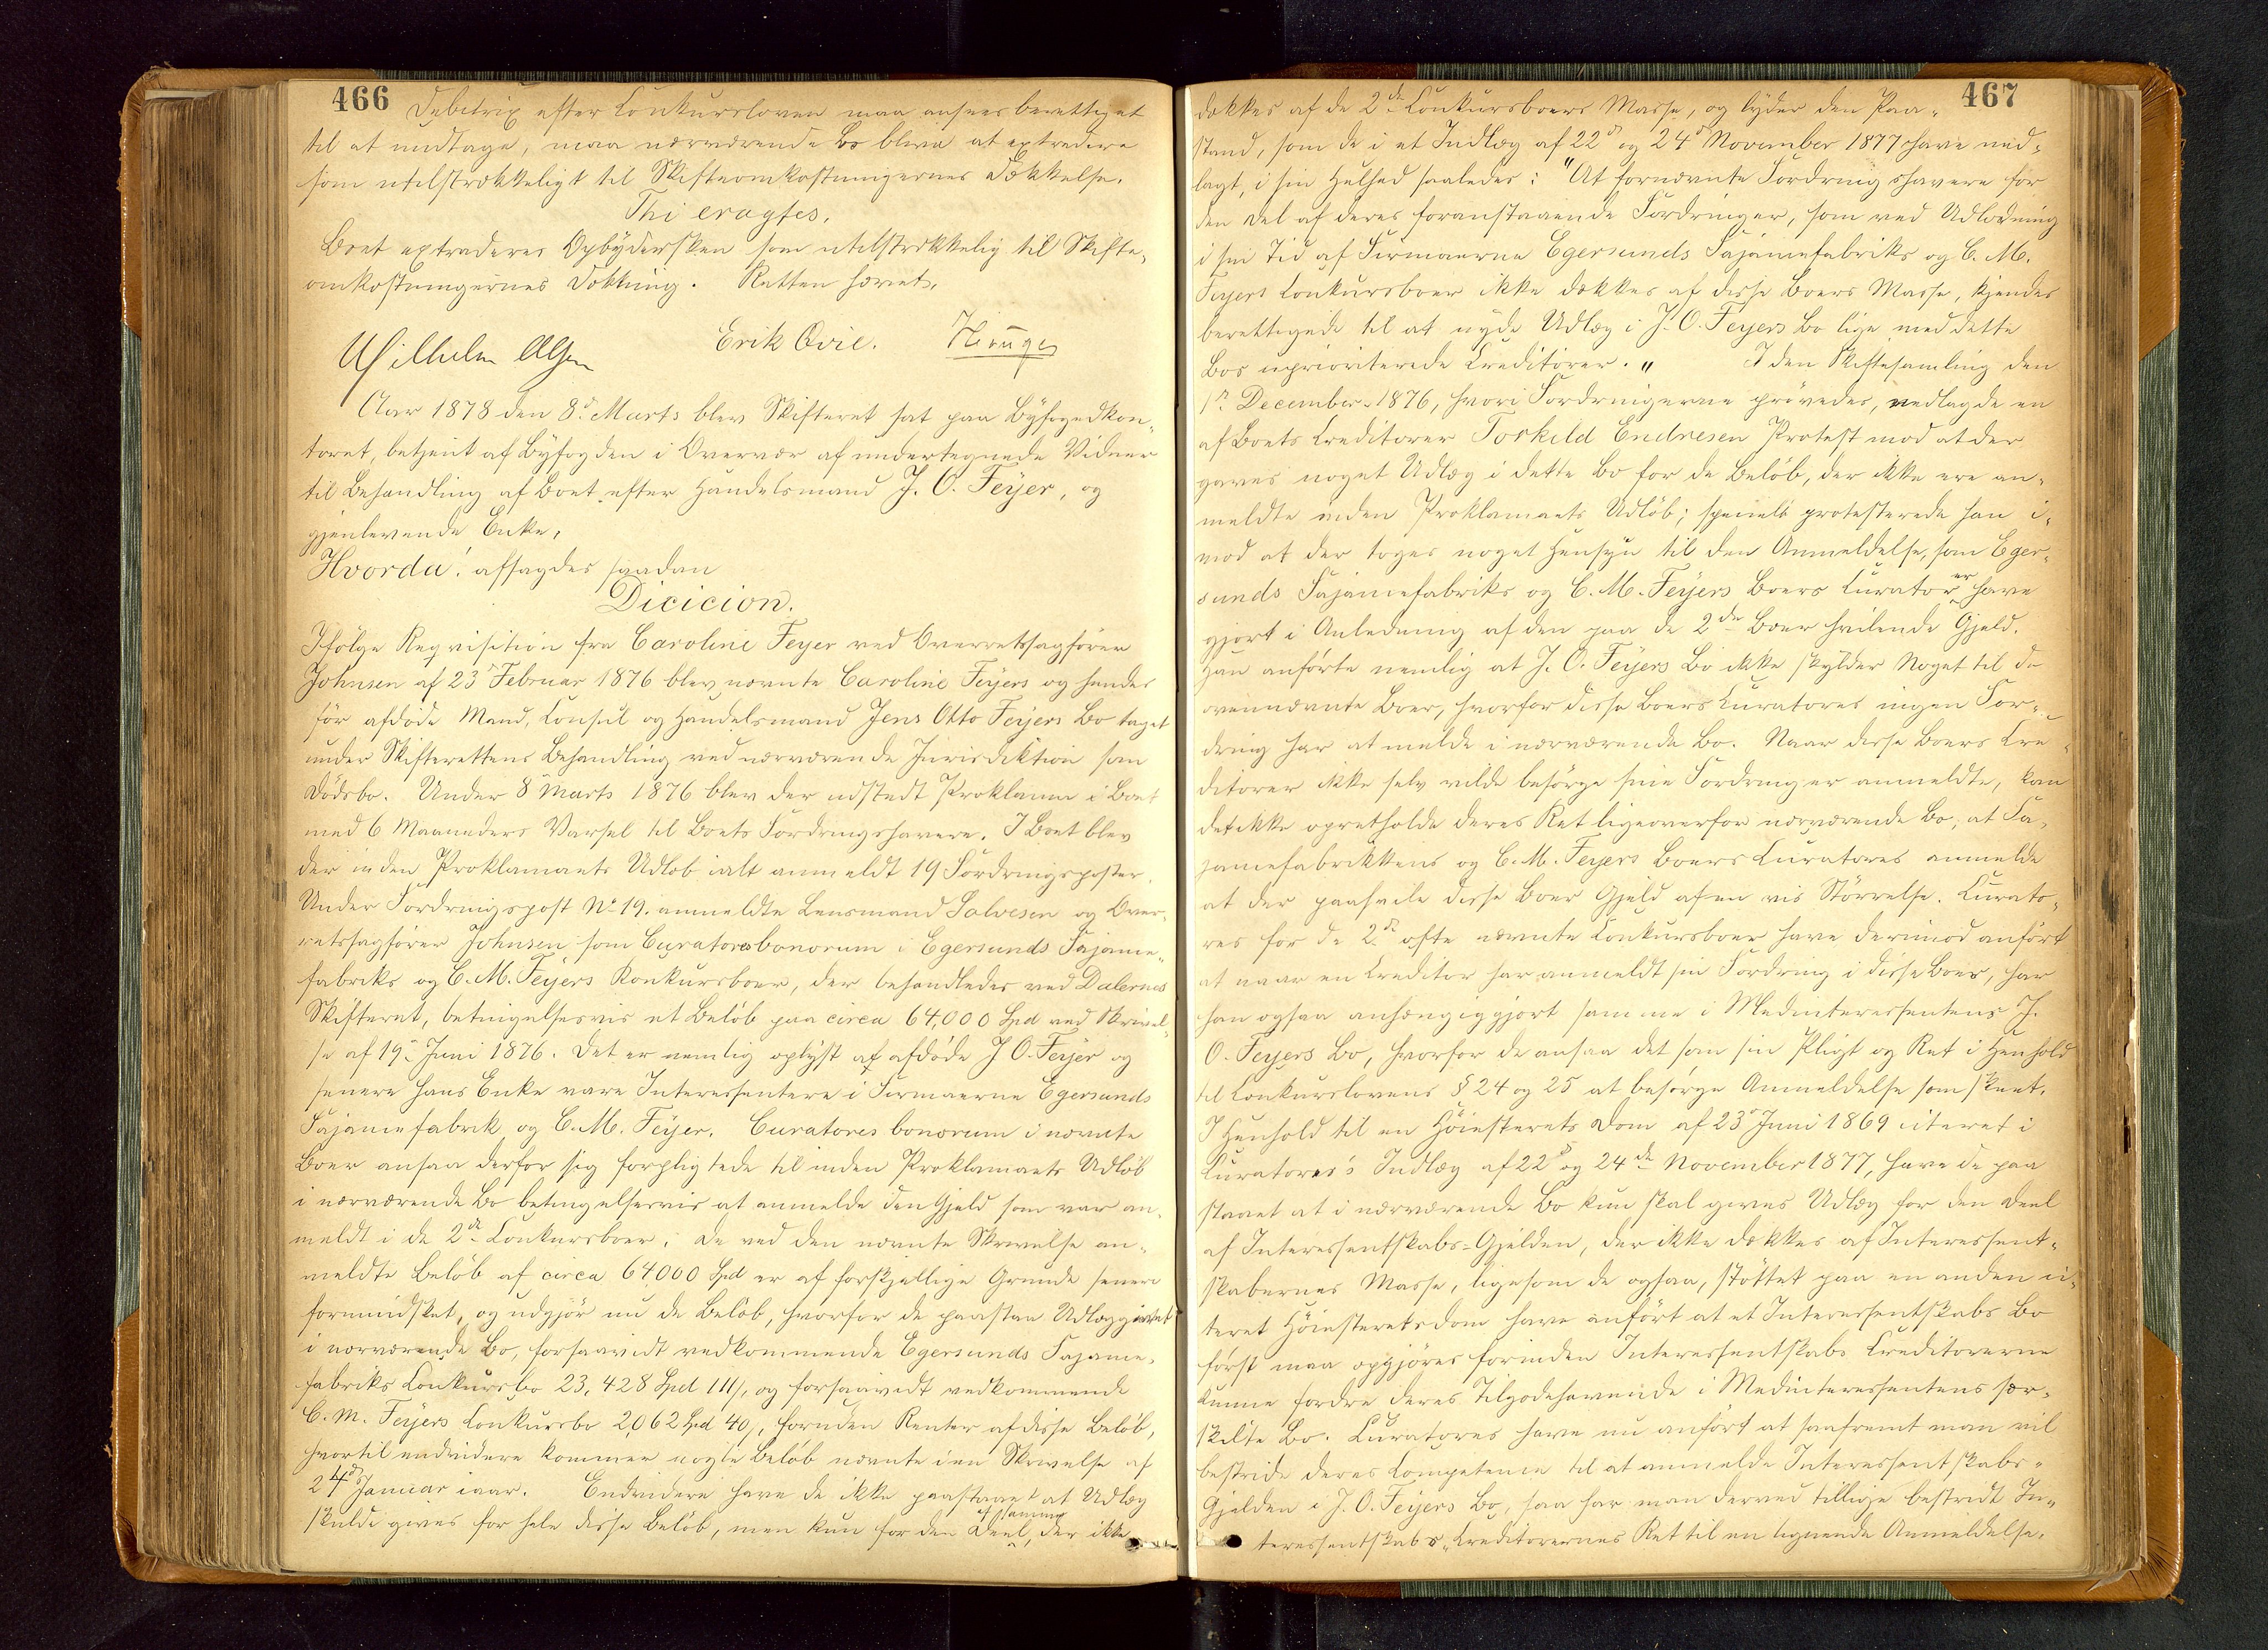 466
Debitrix efter Konkursloven maa ansees berettiget
til at undtage, maa nærværende Bo blive at extradere
som utilstrækkeligt til Skifteomkostningernes Dækkelse.
Thi eragtes.
Boet extraderes Opbydersken som utilstrækkelig til Skifte-
omkostningernes Dækning. Retten hævet.
Wilhelm Olsen Erik Qvie.
Aar 1878 den 8de Marts blev Skifteret sat paa Byfogedkon-
toret, betjent af Byfogden i Overvær af undertegnede Vidner
til Behandling af Boet efter Handelsmand J. O. Feyer, og
gjenlevende Enke,
Hvorda: afsagdes saadan
Dicicion.
Ifølge Reqvisition fra Caroline Feyer ved Overretssagfører
Johnsen af 23de Februar 1876 blev nævnte Caroline Feyers og hendes
før afdøde Mand, Consul og Handelsmand Jens Otto Feyers Bo taget
under Skifterettens Behandling ved nærværende Jurisdiktion som
Dødsbo. Under 8de Marts 1876 blev der udstedt Proklama i Boet
med 6 Maaneders Varsel til Boets Fordringshavere. I Boet blev
der inden Proklamaets Udløb ialt anmeldt 19 Fordringsposter.
Under Fordringspost No 19. anmeldte Lensmand Salvesen og Over-
retssagfører Johnsen som Curatores bonorum i Egersunds Fajance-
fabriks og C. M. Feyers Konkursboer, der behandledes ved Dalernes
Skifteret, betingelsesvis et Beløb paa circa 64,000 Spd ved Skrivel-
se af 19de Juni 1876. Det er nemlig oplyst af afdøde J O. Feyer og
senere hans Enke vare Interessentere i Firmaerne Egersunds
Fajancefabrik og C. M. Feyer. Curatores bonorum i nævnte
Boer ansaa derfor sig forpligtede til inden Proklamaets Udløb
i nærværende Bo betingelsesvis at anmelde den Gjeld som var an-
meldt i de 2de Konkursboer. De ved den nævnte Skrivelse an-
meldte Beløb af circa 64000 Spd er af forskjellige Grunde senere
formindsket, og udgjør nu de Beløb, hvorfor de paastaa Udlæg givet
i nærværende Bo, forsaavidt vedkommende Egersunds Fajance-
fabriks Konkursbo 23,428 Spd 111/, og forsaavidt vedkommende
C. M. Feyers Konkursbo 2,062 Spd 40/, foruden Renter af disse Beløb,
hvortil endvidere kommer nogle Beløb nævnte i en Skrivelse af
24de Januar iaar. Endvidere have de ikke paastaaet at Udlæg
skulde gives for hele disse Beløb, men kun for den Deel af samme, der ikke
467
dækkes af de 2de Konkursboers Masse, og lyder den Paa-
stand, som de i et Indlæg af 22de og 24de November 1877 have ned-
lagt, i sin Helhed saaledes: "At fornævnte Fordringshavere for
den Del af deres foranstaaende Fordringer, som ved Udlodning
i sin Tid af Firmaerne Egersunds Fajancefabriks og C. M.
Feyers Konkursboer ikke dækkes af disse Boers Masse, kjendes
berettigede til at nyde Udlæg i J. O. Feyers Bo lige med dette
Bos uprioriterede Creditorer." I den Skiftesamling den
1ste December 1876, hvori Fordringerne prøvedes, nedlagde en
af Boets Creditorer Torkild Endresen Protest mod at der
gaves noget Udlæg i dette Bo for de Beløb, der ikke ere an-
meldte inden Proklamaets Udløb; specielt protesterede han i-
mod at der toges noget Hensyn til den Anmeldelse, som Eger-
sunds Fajancefabriks og C. M. Feyers Boers Curatorer have
gjort i Anledning af den paa de 2de Boer hvilende Gjeld.
Han anførte nemlig at J. O. Feyers Bo ikke skylder Noget til de
ovennævnte Boer, hvorfor disse Boers Curatores ingen For-
dring har at melde i nærværende Bo. Naar disse Boers Cre-
ditorer ikke selv vilde besørge sine Fordringer anmeldte, kan
det ikke opretholde deres Ret ligeoverfor nærværende Bo, at Fa-
jancefabrikkens og C. M. Feyers Boers Curatores anmelde
at der paahvile disse Boer Gjeld af en vis Størrelse. Curato-
res for de 2de ofte nævnte Konkursboer have derimod anført
at naar en Creditor har anmeldt sin Fordring i disse Boer, har
han ogsaa anhængiggjort samme i Medinteressentens J.
O. Feyers Bo, hvorfor de ansaa det som sin Pligt og Ret i Henhold
til Konkurslovens § 24 og 25 at besørge Anmeldelse som skeet.
I Henhold til en Høiesterets Dom af 23de Juni 1869 citeret i
Curatores's Indlæg af 22de og 24de November 1877, have de paa
staaet at i nærværende Bo kun skal gives Udlæg for den Deel
af Interessentskabs-Gjelden, der ikke dækkes af Interessent-
skabernes Masse, ligesom de ogsaa, støttet paa en anden ci-
teret Høiesteretsdom have anført at et Interessentskabs Bo
først maa opgjøres forinden Interessentskabs Creditorerne
kunne fordre deres Tilgodehavende i Medinteressentens sær-
skilte Bo. Curatores have nu anført at saafremt man vil
bestride deres Competence til at anmelde Interessentskabs-
Gjelden i J. O. Feyers Bo, saa har man derved tillige bestridt In-
teressentskabs-Creditorernes Ret til en lignende Anmeldelse.